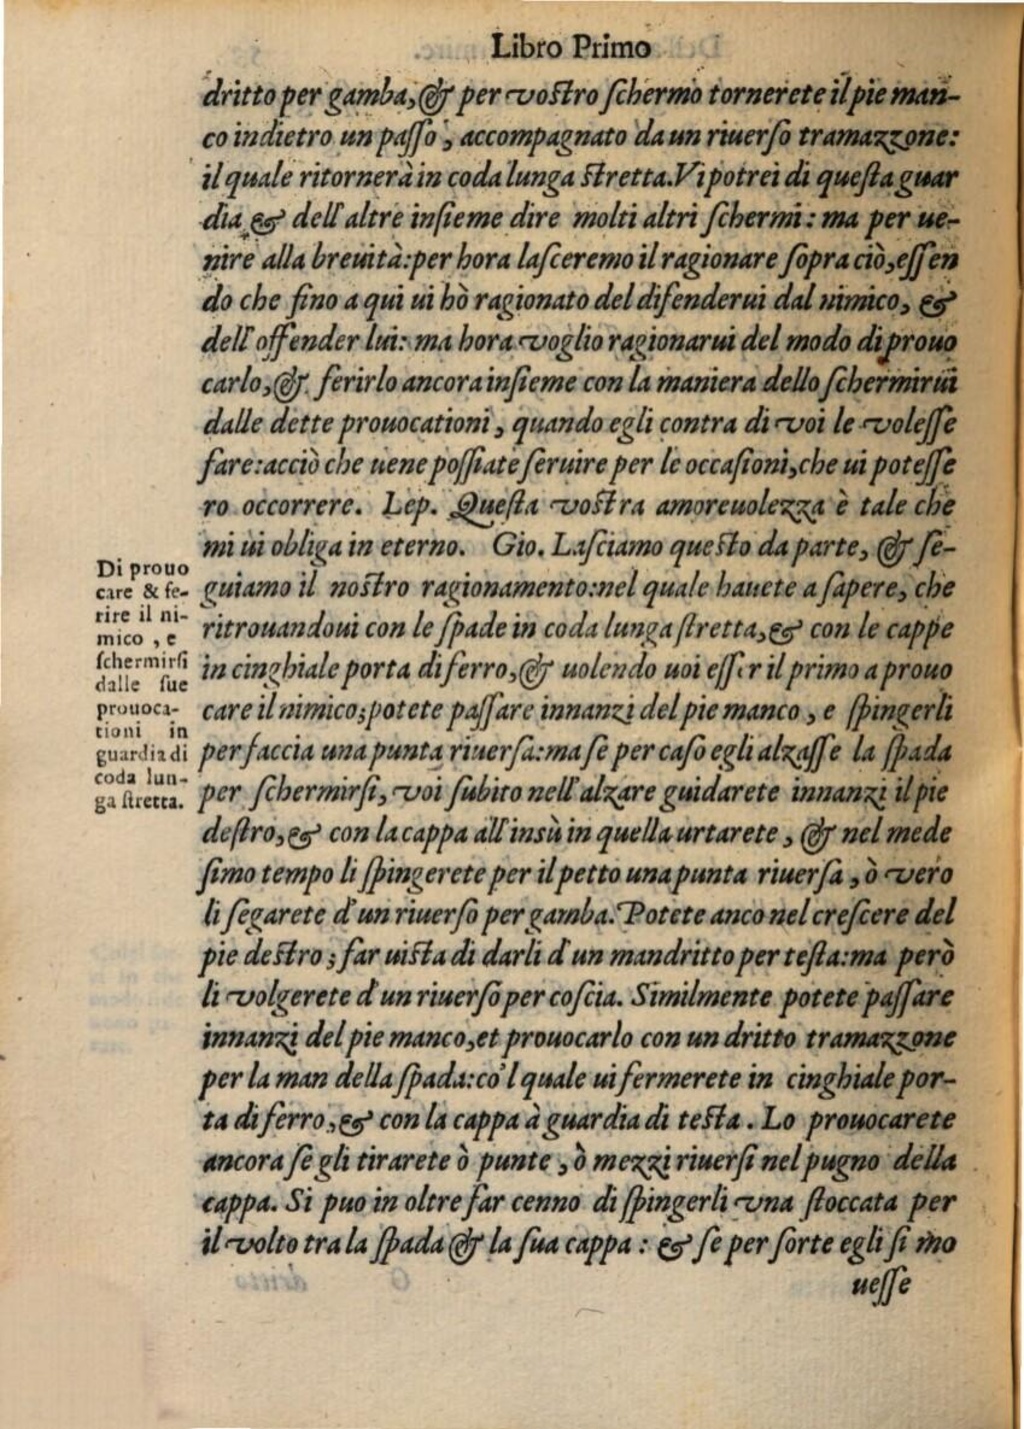 Libro Primo
dritto per gamba, & per voſtro ſchermo tornerete il pie man-
co indietro un paſſo, accompagnato da un riuerſo tramazzone:
il quale ritornerà in coda lunga ſtretta. Vi potrei di queſta guar
dia & dell'altre inſieme dire molti altri ſchermi: ma per ue-
nire alla breuità: per hora laſceremo il ragionare ſopra ciò, eſſen
do che fino a qui ui hò ragionato del difenderui dal nimico, &
dell'offender lui: ma hora voglio ragionarui del modo di prouo
carlo, & ferirlo ancora inſieme con la maniera dello ſchermirui
dalle dette prouocationi, quando egli contra di voi le voleſſe
fare: acciò che uene poſſiate ſeruire per le occaſioni, che ui poteſſe
ro occorrere. Lep. Queſta voſtra amoreuolezza è tale che
mi ui obliga in eterno. Gio. Laſciamo queſto da parte, & ſe-
guiamo il noſtro ragionamento: nel quale hauete a ſapere, che
ritrouandoui con le ſpade in coda lunga ſtretta, & con le cappe
in cinghiale porta di ferro, & uolendo uoi eſſer il primo a prouo
care il nimico; potete paſſare innanzi del pie manco, e ſpingerli
per faccia una punta riuerſa: ma ſe per caſo egli alzaſſe la ſpada
per ſchermirſi, voi ſubito nell'alzare guidarete innanzi il pie
deſtro, & con la cappa all'insù in quella urtarete, & nel mede
ſimo tempo li ſpingerete per il petto una punta riuerſa, ò vero
li ſegarete d'un riuerſo per gamba. Potete anco nel creſcere del
pie deſtro; far uiſta di darli d'un mandritto per teſta: ma però
li volgerete d'un riuerſo per coſcia. Similmente potete paſſare
innanzi del pie manco, et prouocarlo con un dritto tramazzone
per la man della ſpada: co'l quale ui fermerete in cinghiale por-
ta di ferro, & con la cappa à guardia di teſta. Lo prouocarete
ancora ſe gli tirarete ò punte, ò mezzi riuerſi nel pugno della
cappa. Si puo in oltre far cenno di ſpingerli vna ſtoccata per
il volto tra la ſpada & la ſua cappa: & ſe per ſorte egli ſi mo
ueſſe
Di prouo
care & fe-
rire il ni-
mico, e
ſchermirſi
dalle ſue
prouoca-
tioni in
guardia di
coda lun-
ga ſtretta.